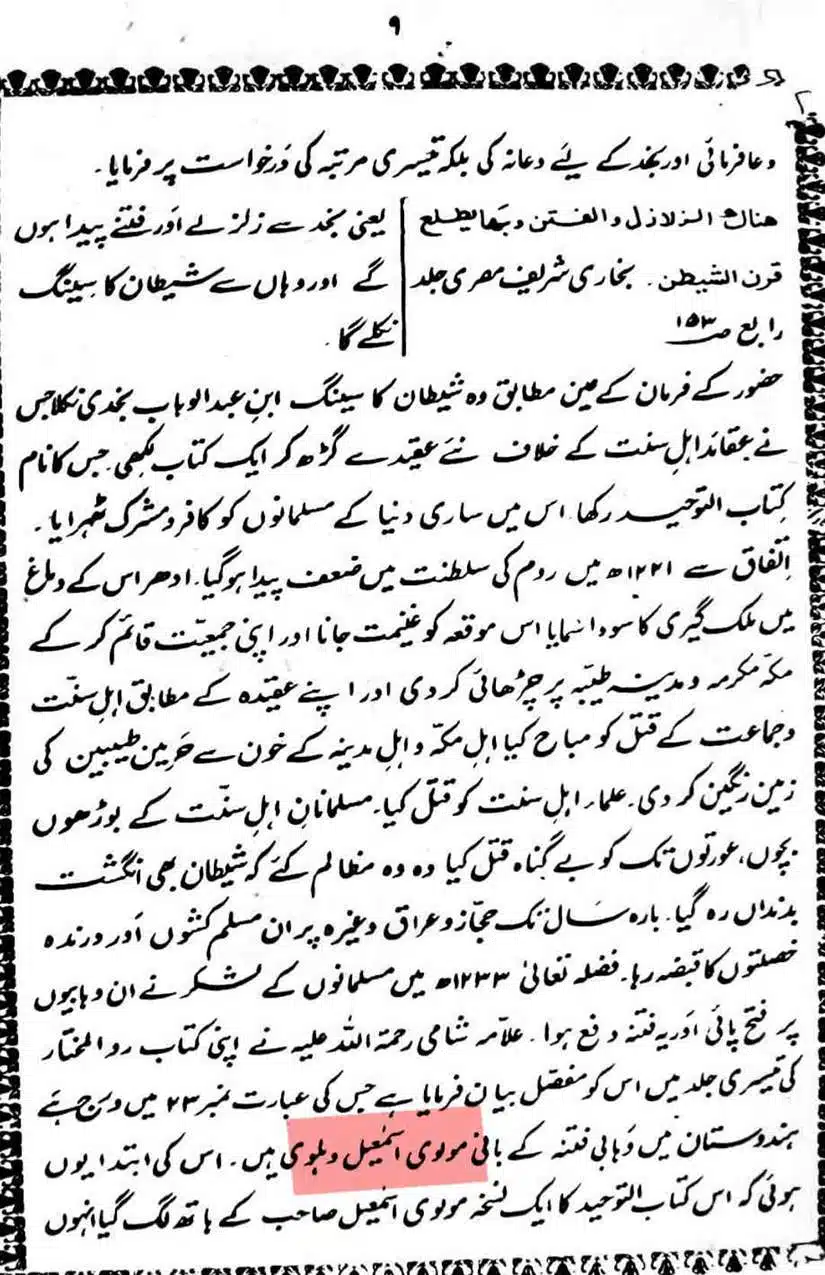 ۹
دعا فرمائی اور نجد کے لیے دعا نہ کی بلکہ تیسری مرتبہ کی درخواست پر فرمایا۔
هناك الزلازل والفتن وبها يطلع
قرن الشيطن۔ بخاری شریف مصری جلد
رابع ص ۱۵۳
یعنی نجد سے زلزلے اور فتنے پیدا ہوں
گے اور وہاں سے شیطان کا سینگ
نکلے گا۔
حضور کے فرمان کے عین مطابق وہ شیطان کا سینگ ابن عبدالوہاب نجدی نکلا جس
نے عقائد اہل سنت کے خلاف نئے عقیدے گڑھ کر ایک کتاب لکھی جس کا نام
کتاب التوحید رکھا اس میں ساری دنیا کے مسلمانوں کو کافر و مشرک ٹھہرایا۔
اتفاق سے ۱۲۲۱ھ میں روم کی سلطنت میں ضعف پیدا ہوگیا۔ ادھر اس کے دماغ
میں ملک گیری کا سودا سمایا اس موقعہ کو غنیمت جانا اور اپنی جمعیّت قائم کر کے
مکہ مکرمہ و مدینہ طیّبہ پر چڑھائی کر دی اور اپنے عقیدہ کے مطابق اہل سنّت
وجماعت کے قتل کو مباح کیا اہل مکّہ و اہل مدینہ کے خون سے حرمین طیبین کی
زمین رنگین کر دی۔ علماء اہل سنت کو قتل کیا۔ مسلمانانِ اہل سنّت کے بوڑھوں
بچوں، عورتوں تک کو بے گناہ قتل کیا وہ وہ مظالم کئے کہ شیطان بھی انگشت
بدنداں رہ گیا۔ بارہ سال تک حجاز و عراق وغیرہ پر ان مسلم کشوں اور درندہ
خصلتوں کا قبضہ رہا۔ فضلہ تعالیٰ ۱۲۳۳ھ میں مسلمانوں کے لشکر نے ان وہابیوں
پر فتح پائی اور یہ فتنہ دفع ہوا۔ علّامہ شامی رحمۃ اللہ علیہ نے اپنی کتاب رد المختار
کی تیسری جلد میں اس کو مفصل بیان فرمایا ہے جس کی عبارت نمبر ۲۳ میں درج ہے
ہندوستان میں وہابی فتنہ کے بانی مولوی اسمٰعیل دہلوی ہیں۔ اس کی ابتدا یوں
ہوئی کہ اس کتاب التوحید کا ایک نسخہ مولوی اسمٰعیل صاحب کے ہاتھ لگ گیا انہوں